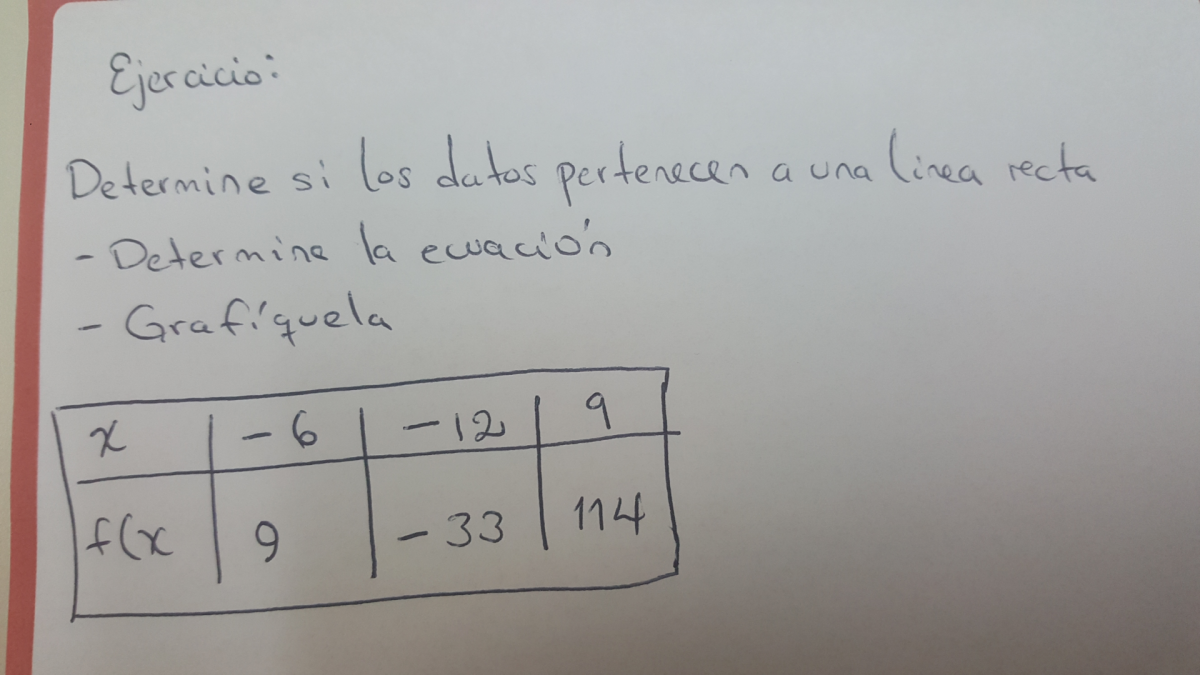 Ejercicio:
Determine si los datos pertenecen a una linea recta
- Determine la ecuación
- Grafíquela
x -6 -12 9
f(x 9 -33 114